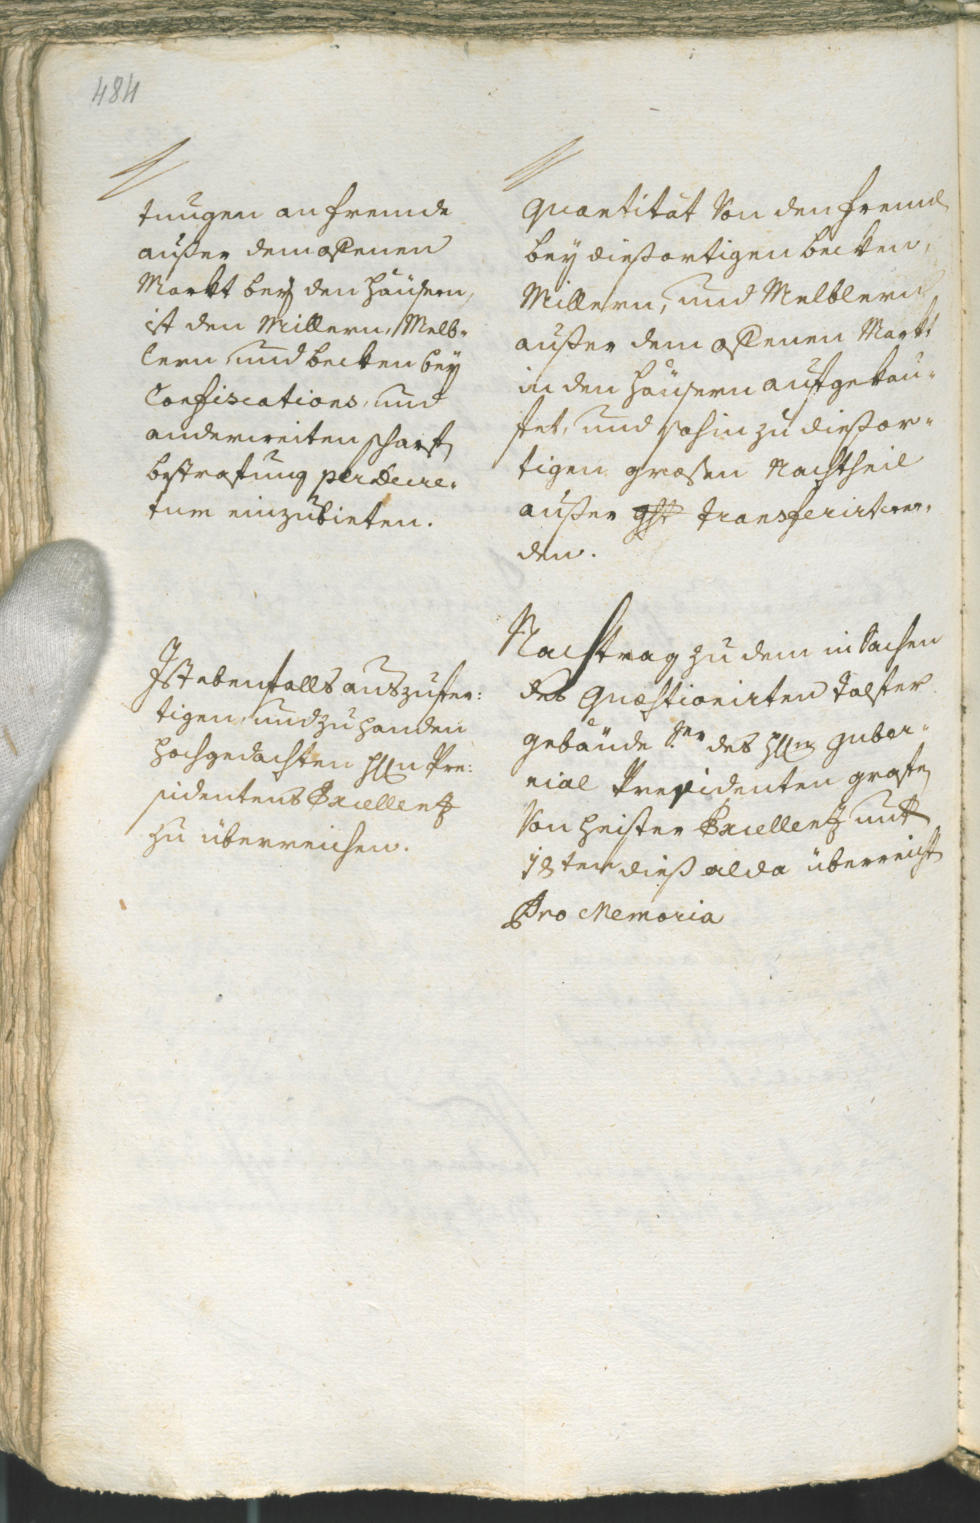 484
tnugen an fremde
außer dem offenen
Markt bey den Häusern,
ist den Millern, Melb-
lern und becken bey
Confiscations, und
anderweiten scharf
bestrafung per Decre-
tum einzubieten.
Ist ebenfalls auszufer:
tigen, und zu handen
hochgedachten Hℓℓn Pre:
sidentens Excellentz
zu überreichen.
quantität von den fremd
bey diesortigen becken,
Millern, und Melblern
außer dem offenen Markt
in den Häusern aufgekau-
fet, und sohin zu diesor-
tigen grosen Nachtheil
außer transferirt wer-
den.
Nachtrag zu dem in Sachen
des quæstionirten
gebäude Sr. des Hℓℓn guber-
nial Presidenten grafen
von Heister Excellentz unt
18ten dieß alda überreicht
Pro Memoria